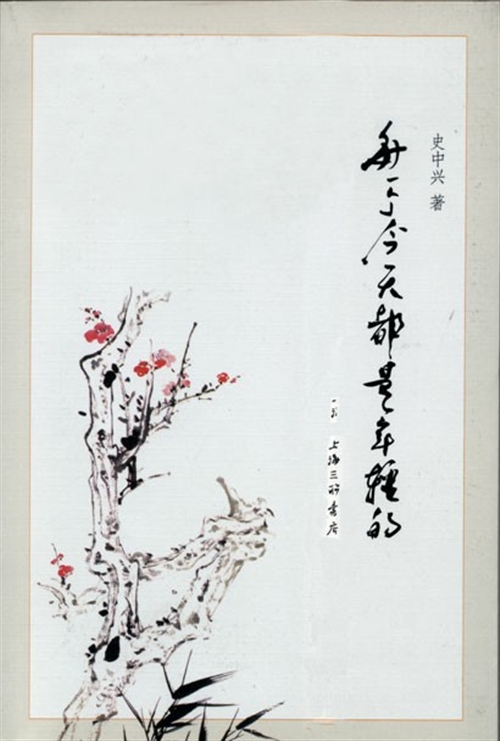 史中兴 著
每个今天都是年轻的
上海三联书店